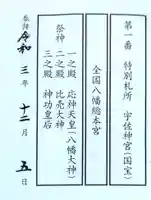 第一番　特別札所　宇佐神宮（国宝）
全国八幡総本宮
祭神
一之殿　応神天皇（八幡大神）
二之殿　比売大神
三之殿　神功皇后
参拝 令和 三年 十二月 五日